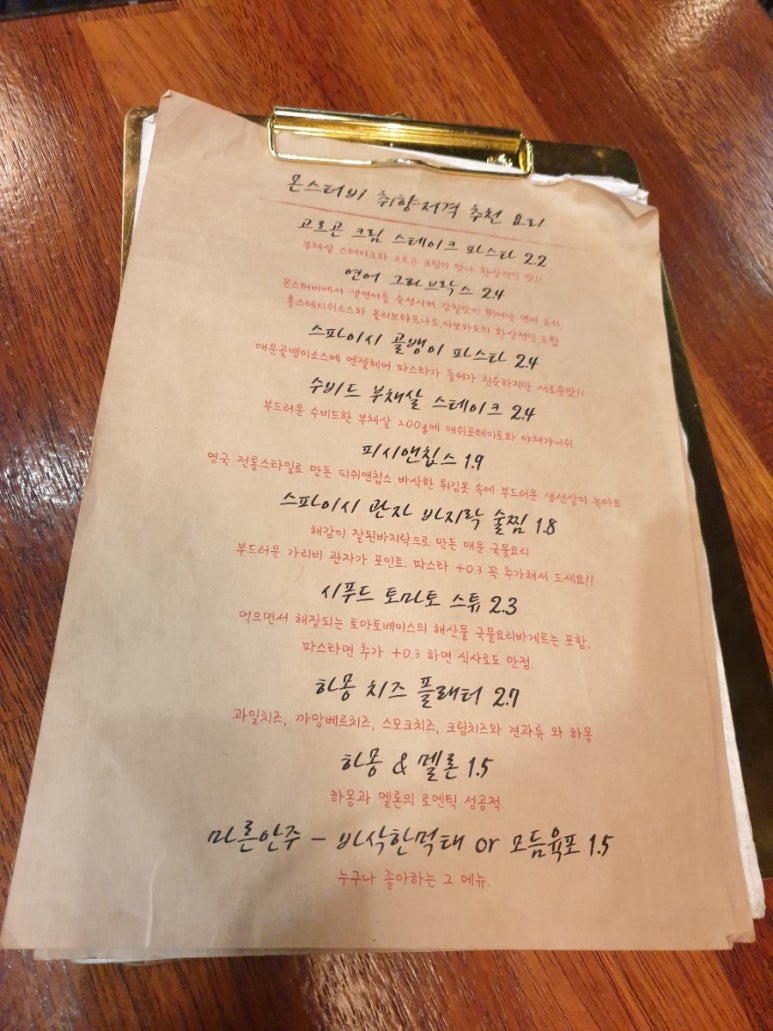 몬스터비 취향저격 추천 요리
고르곤 크림 스테이크 파스타 2.2
부채살 스테이크와 고르곤 크림이 만나 환상적인 맛!!
연어 그라브락스 2.4
몬스터비에서 생연어를 숙성시켜 감칠맛이 뛰어난 연어 요리,
홀스레디쉬소스와 올리브타프나드,아보카도의 환상적인 조합
스파이시 골뱅이 파스타 2.4
매운골뱅이소스에 엔젤헤어 파스타가 들어가 친숙하지만 새로운맛!!
수비드 부채살 스테이크 2.4
부드러운 수비드한 부채살 200g에 매쉬포테이토와 야채가니쉬.
피시앤칩스 1.9
영국 전통스타일로 만든 피쉬앤칩스 바삭한 튀김옷 속에 부드러운 생선살이 녹아요
스파이시 관자 바지락 술찜 1.8
해감이 잘된바지락으로 만든 매운 국물요리
부드러운 가리비 관자가 포인트. 파스타 +0.3 꼭 추가해서 드세요!!
시푸드 토마토 스튜 2.3
먹으면서 해장되는 토마토베이스의 해산물 국물요리바게트는 포함,
파스타면 추가 +0.3 하면 식사로도 만점.
하몽 치즈 플래터 2.7
과일치즈, 까망베르치즈, 스모크치즈, 크림치즈와 견과류 와 하몽
하몽 & 멜론 1.5
하몽과 멜론의 로멘틱 성공적.
마른안주 - 바삭한먹태 or 모듬육포 1.5
누구나 좋아하는 그 메뉴.